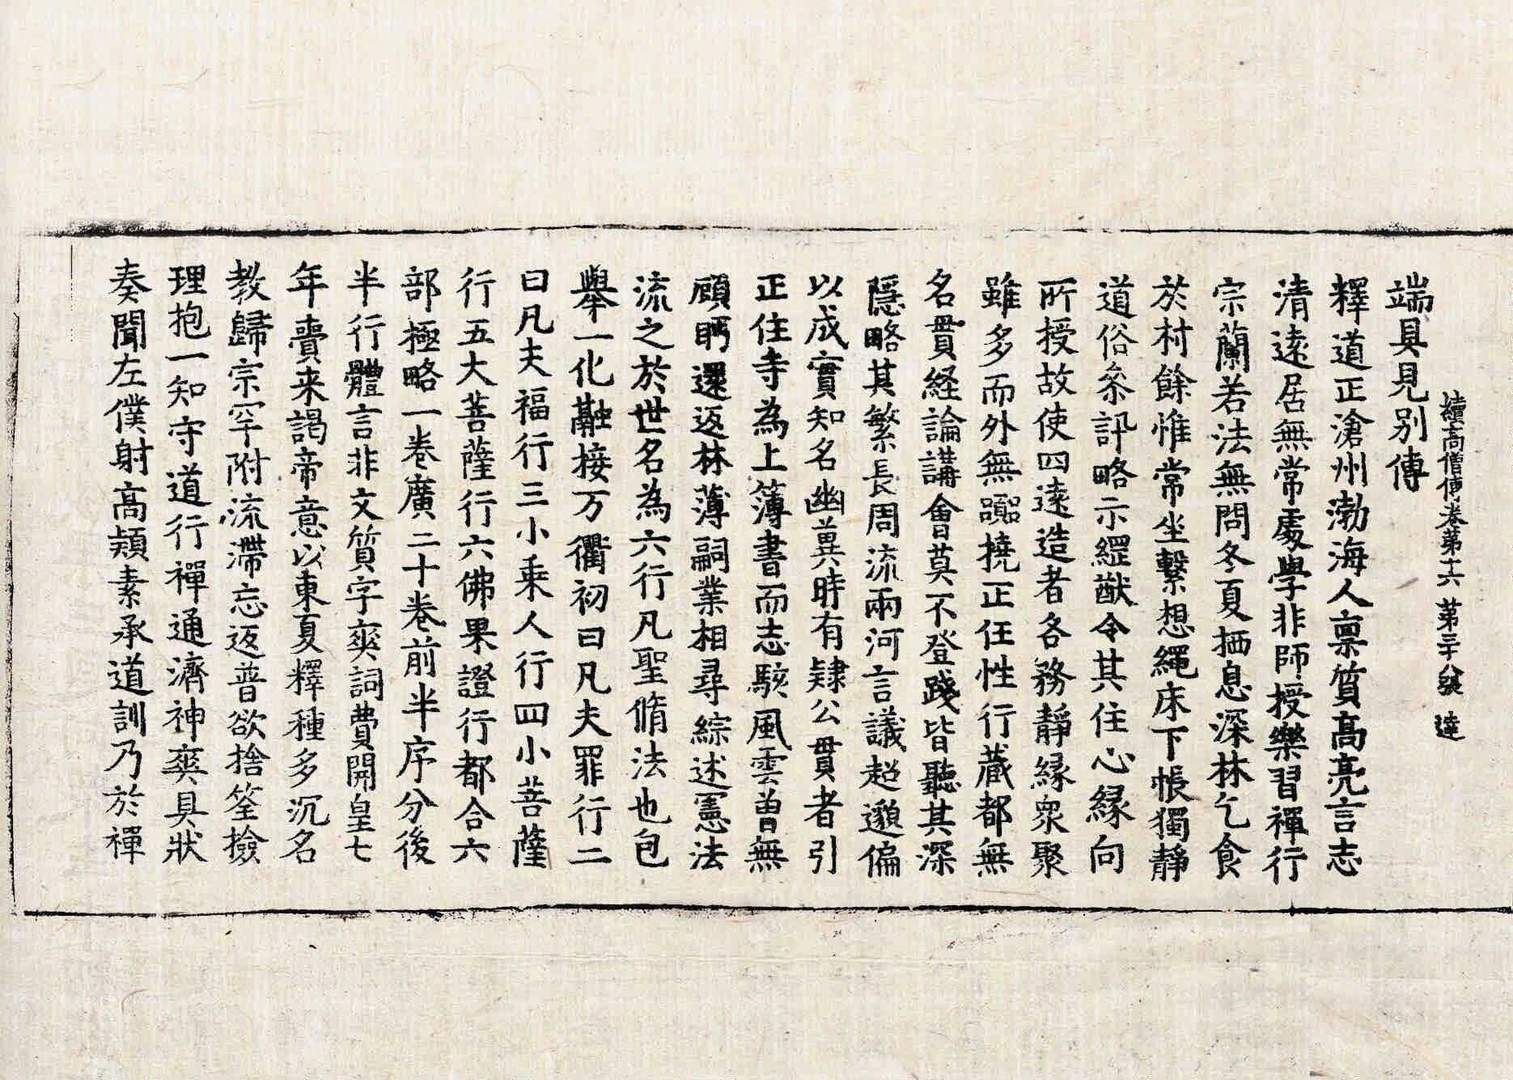 續高僧傳卷第十六 第三十八張 達
端具見別傳
釋道正滄州渤海人稟質高亮言志
清遠居無常處學非師授樂習禪行
宗蘭若法無問冬夏栖息深林乞食
於村餘惟常坐繫想繩床下帳獨靜
道俗叅訊略示綱猷令其住心緣向
所授故使四遠造者各務靜緣衆聚
雖多而外無囂撓正任性行藏都無
名貫経論講會莫不登踐皆聽其深
隱略其繁長周流兩河言議超邈偏
以成實知名幽冀時有隸公貫者引
正住寺為上簿書而志駭風雲曾無
顧眄還返林薄嗣業相尋綜述憲法
流之於世名為六行凡聖脩法也包
舉一化融接万衢初曰凡夫罪行二
曰凡夫福行三小乘人行四小菩薩
行五大菩薩行六佛果證行都合六
部極略一卷廣二十卷前半序分後
半行體言非文質字爽詞費開皇七
年賷来謁帝意以東夏釋種多沉名
教歸宗罕附流滯忘返普欲捨筌撿
理抱一知守道行禪通濟神爽具狀
奏聞左僕射高熲素承道訓乃於禪